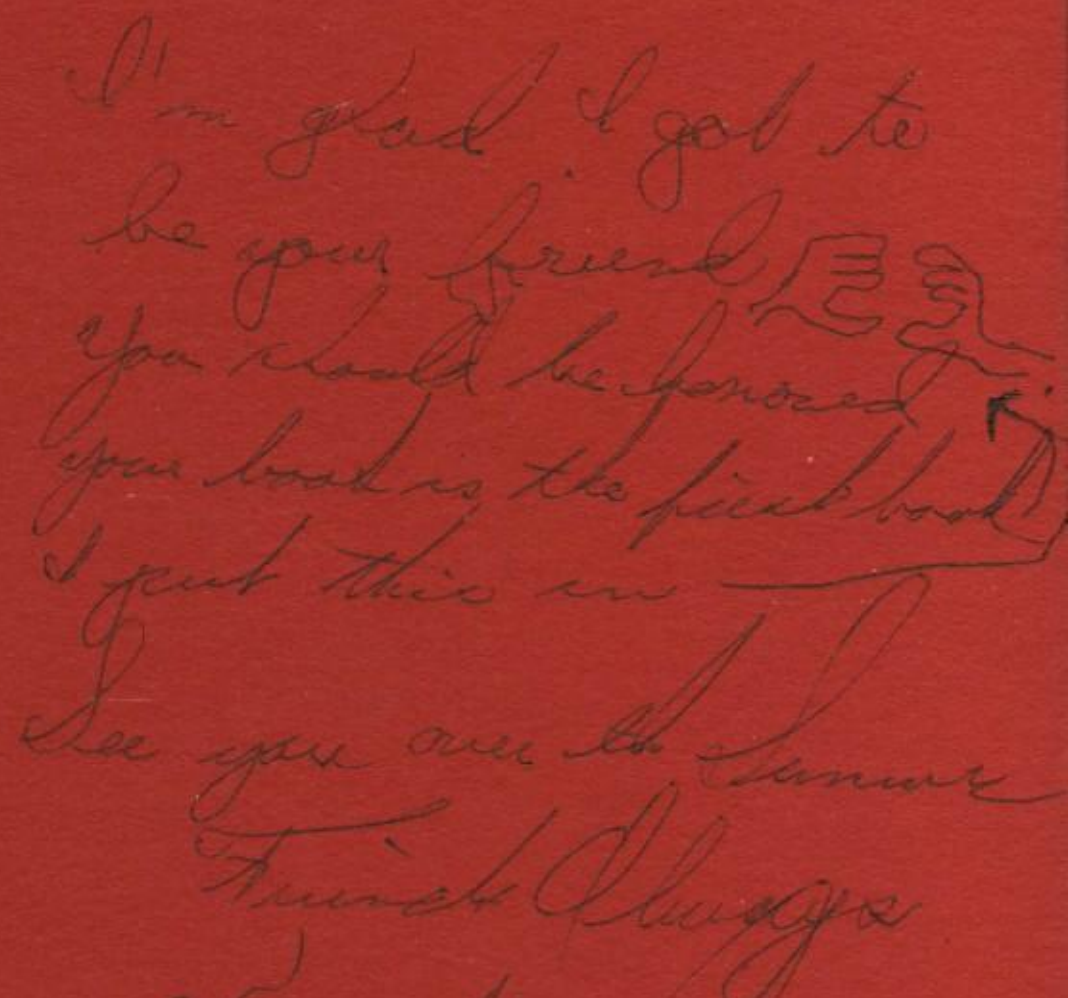 I'm glad I got to
be your friend
You should be honored
your book is the first book
I put this in
See you over the Summer
Friends Always